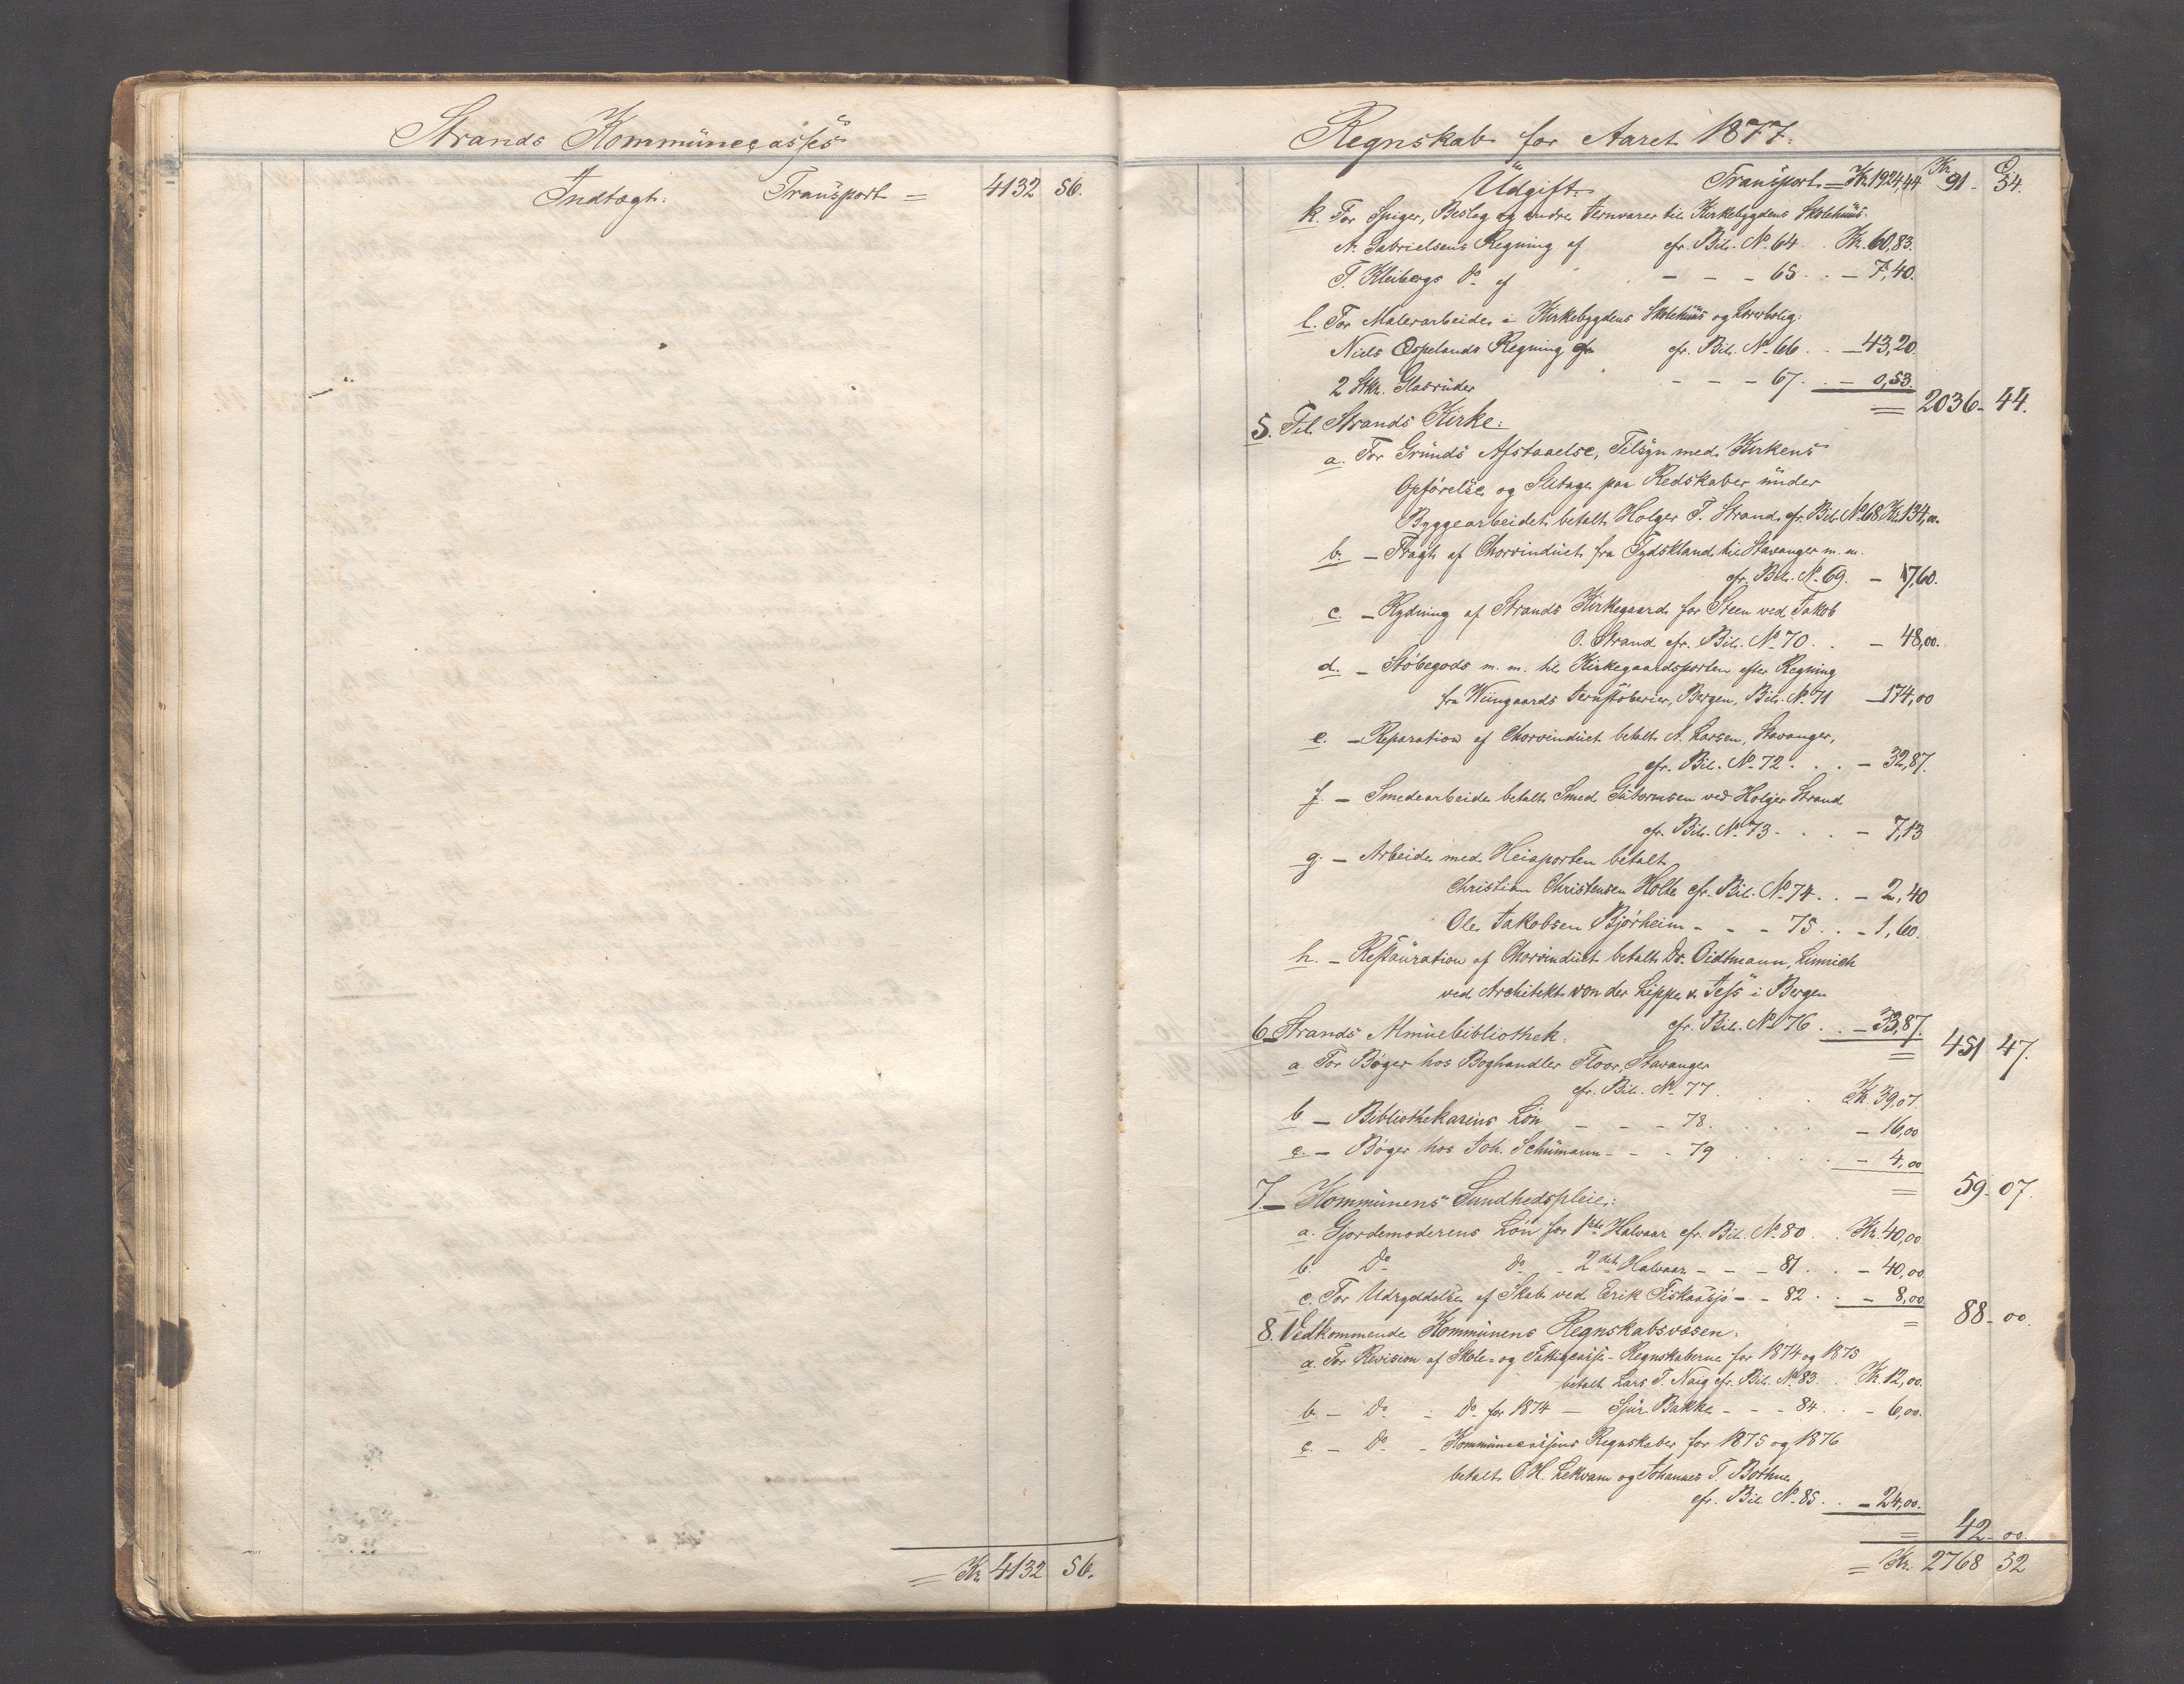 Strands Kommunecasses
Indtægt. Transport = 4132 56.
= Kr. 4132 56.
Regnskab for Aaret 1877.
Kr. Ø.
Udgift. Transport = Kr. 1924,44 91 - 54.
k. For Spiger, Beslag og andre Jernvarer til Kirkebygdens Skolehuus.
A. Gabrielsens Regning af cfr. Bil. No. 64 . Kr. 60,83.
T. Kleibergs Do. af - - - 65 . . - 7,40.
l. For Malerarbeide i Kirkebygdens Skolehuus og Lærerbolig:
Niels Øspelands Regning cfr. Bil. No. 66 . . - 43,20.
2 Stkr. Glasruder - - - 67 . . - 0,53.
= 2036 - 44.
5. Til Strands Kirke:
a. For Grunds Afstaaelse, Tilsyn med Kirkens
Opførelse og Slitage paa Redskaber under
Byggearbeidet betalt Holger T. Strand cfr. Bil. No. 68 Kr. 134,00.
b. - Fragt af Chorvinduet fra Tydskland til Stavanger m. m.
cfr. Bil. No. 69. - 17,60.
c. - Rydning af Strands Kirkegaard for Steen ved Jakob
O. Strand cfr. Bil. No. 70 . . - 48,00.
d. - Støbegods m. m. til Kirkegaardsporten efter Regning
fra Wiingaards Jernstøberier, Bergen, Bil. No. 71 - 174,00
e. - Reparation af Chorvinduet betalt A. Larsen, Stavanger,
cfr. Bil. No. 72 . . . - 32,87.
f. - Smedearbeide betalt Smed Gutormsen ved Holger Strand
cfr. Bil. No. 73 . . . - 7,13
g. - Arbeide med Heiaporten betalt
Christian Christensen Holta cfr. Bil. No. 74 . . - 2,40
Ole Jakobsen Bjørheim - - - 75 . . - 1,60.
h. - Restauration af Chorvinduet betalt Dr. Oidtmann, Linnich
ved Architekt von der Lippe & Jess i Bergen
cfr. Bil. No. 76 . . - 33,87.
= 451 47.
6. Strands Almuebibliothek.
a. For Bøger hos Boghandler Floor, Stavanger
cfr. Bil. No. 77 . . . Kr. 39,07.
b. - Bibliothekarens Løn - - - 78. . . . - 16,00
c. - Bøger hos Joh. Schumann - - - 79 . . . - 4,00
= 59 - 07.
7. - Kommunens Sundhedspleie:
a. Gjordemoderens Løn for 1ste Halvaar cfr. Bil. No. 80 . . Kr. 40,00
b. Do. Do. - 2det Halvaar - - - 81 . . - 40,00
c. For Udryddelse af Skab ved Erik Fiskaasjø - - 82 . . - 8,00
= 88 - 00.
8. Vedkommende Kommunens Regnskabsvæsen.
a. For Revision af Skole- og Fattigcasse-Regnskaberne for 1874 og 1875
betalt Lars T. Nag cfr. Bil. No. 83 . . Kr. 12,00.
b. - Do. - Do. for 1874 - Sjur Bakke - - - 84 . . - 6,00.
c. - Do. - Kommunecassens Regnskaber for 1875 og 1876
betalt O. H. Lekvam og Johannes T. Bothne
cfr. Bil. No. 85 . . - 24,00.
= 42 - 00.
= Kr. 2768 52